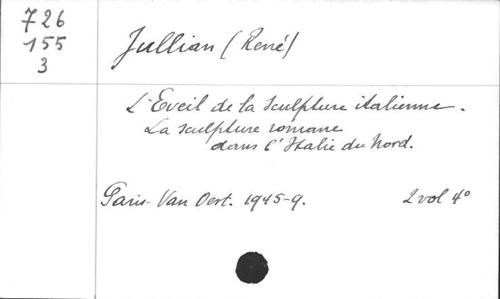 726
155
3
Jullian (René)
L'Eveil de la sculpture italienne.
La sculpture romane
dans l'Italie du Nord.
Paris. Van Oest. 1945-9. 2 vol 4°